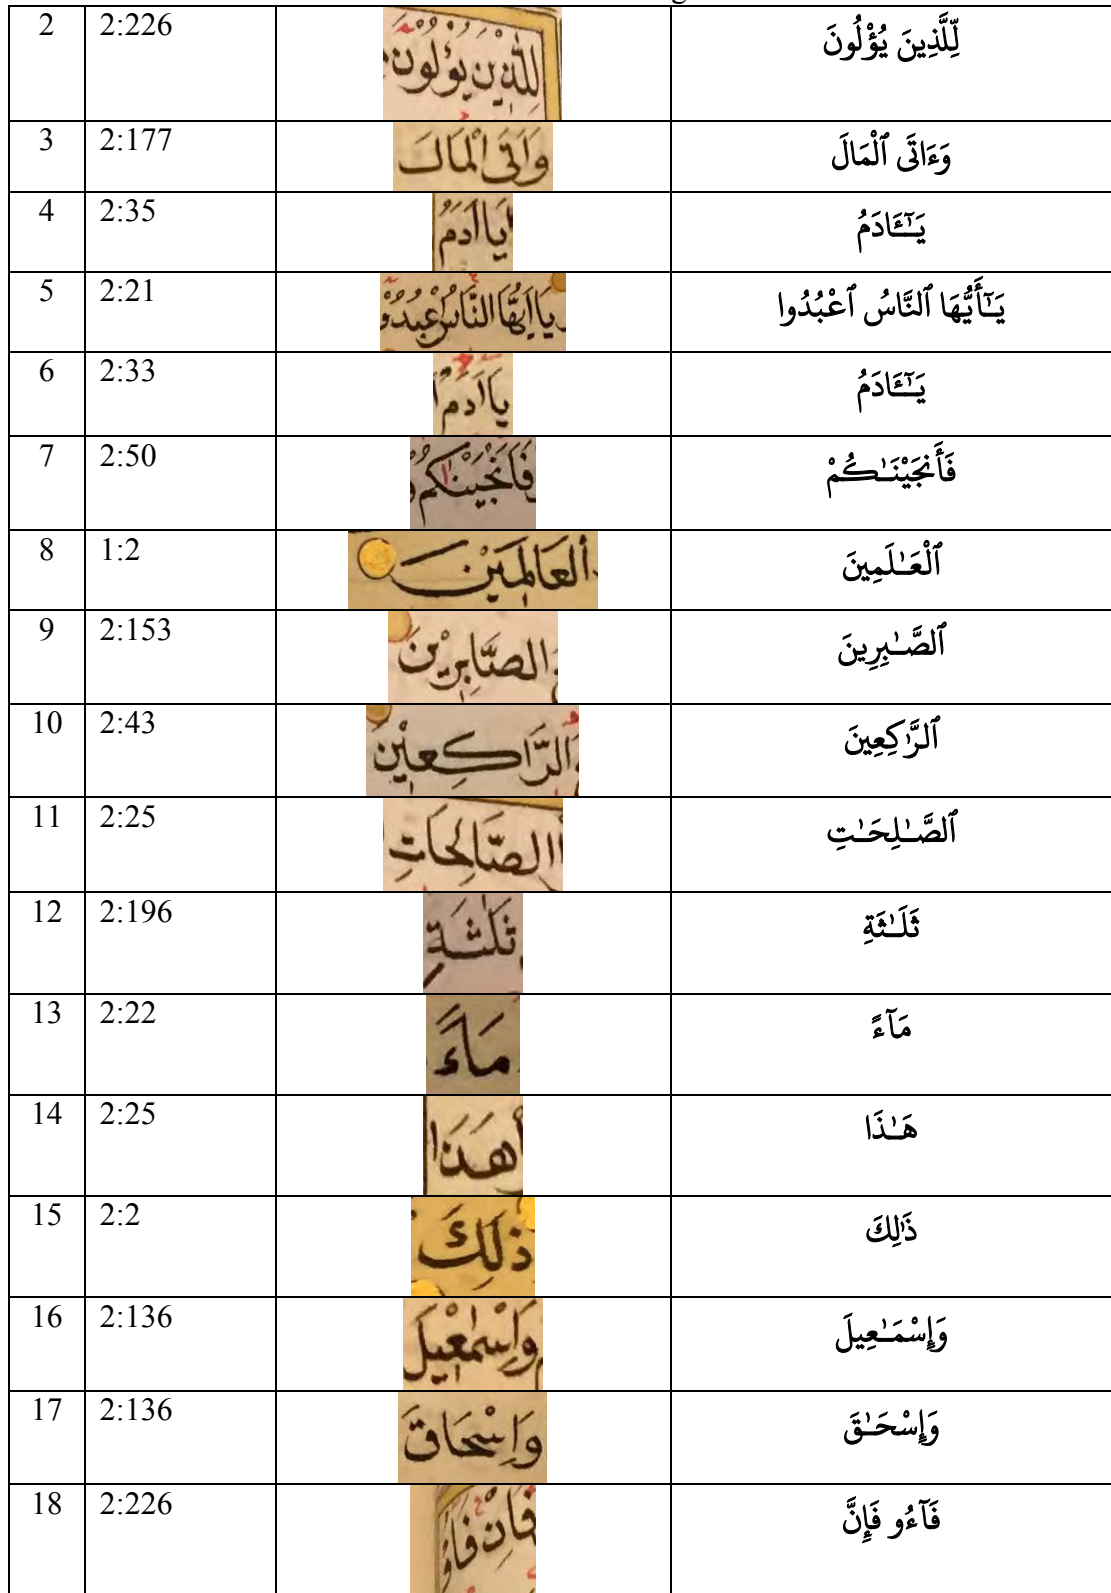 2 2:226 لِلَّذِيْنَ يُؤْلُوْنَ لِّلَّذِينَ يُؤْلُونَ
3 2:177 وَاٰتَى الْمَالَ وَءَاتَى ٱلْمَالَ
4 2:35 يَااٰدَمُ يَـٰٓـَٔادَمُ
5 2:21 يَااَيُّهَا النَّاسُ اعْبُدُوْ يَـٰٓأَيُّهَا ٱلنَّاسُ ٱعْبُدُوا
6 2:33 يَااٰدَمُ يَـٰٓـَٔادَمُ
7 2:50 فَاَنْجَيْنٰكُمْ فَأَنجَيْنَـٰكُمْ
8 1:2 الْعَالَمِيْنَ ٱلْعَـٰلَمِينَ
9 2:153 الصَّابِرِيْنَ ٱلصَّـٰبِرِينَ
10 2:43 الرَّاكِعِيْنَ ٱلرَّٰكِعِينَ
11 2:25 الصَّالِحَاتِ ٱلصَّـٰلِحَـٰتِ
12 2:196 ثَلٰثَةِ ثَلَـٰثَةِ
13 2:22 مَاءً مَآءً
14 2:25 هٰذَا هَـٰذَا
15 2:2 ذٰلِكَ ذَٰلِكَ
16 2:136 وَاِسْمٰعِيْلَ وَإِسْمَـٰعِيلَ
17 2:136 وَاِسْحَاقَ وَإِسْحَـٰقَ
18 2:226 فَاِنْ فَاؤُ فَآءُو فَإِنَّ